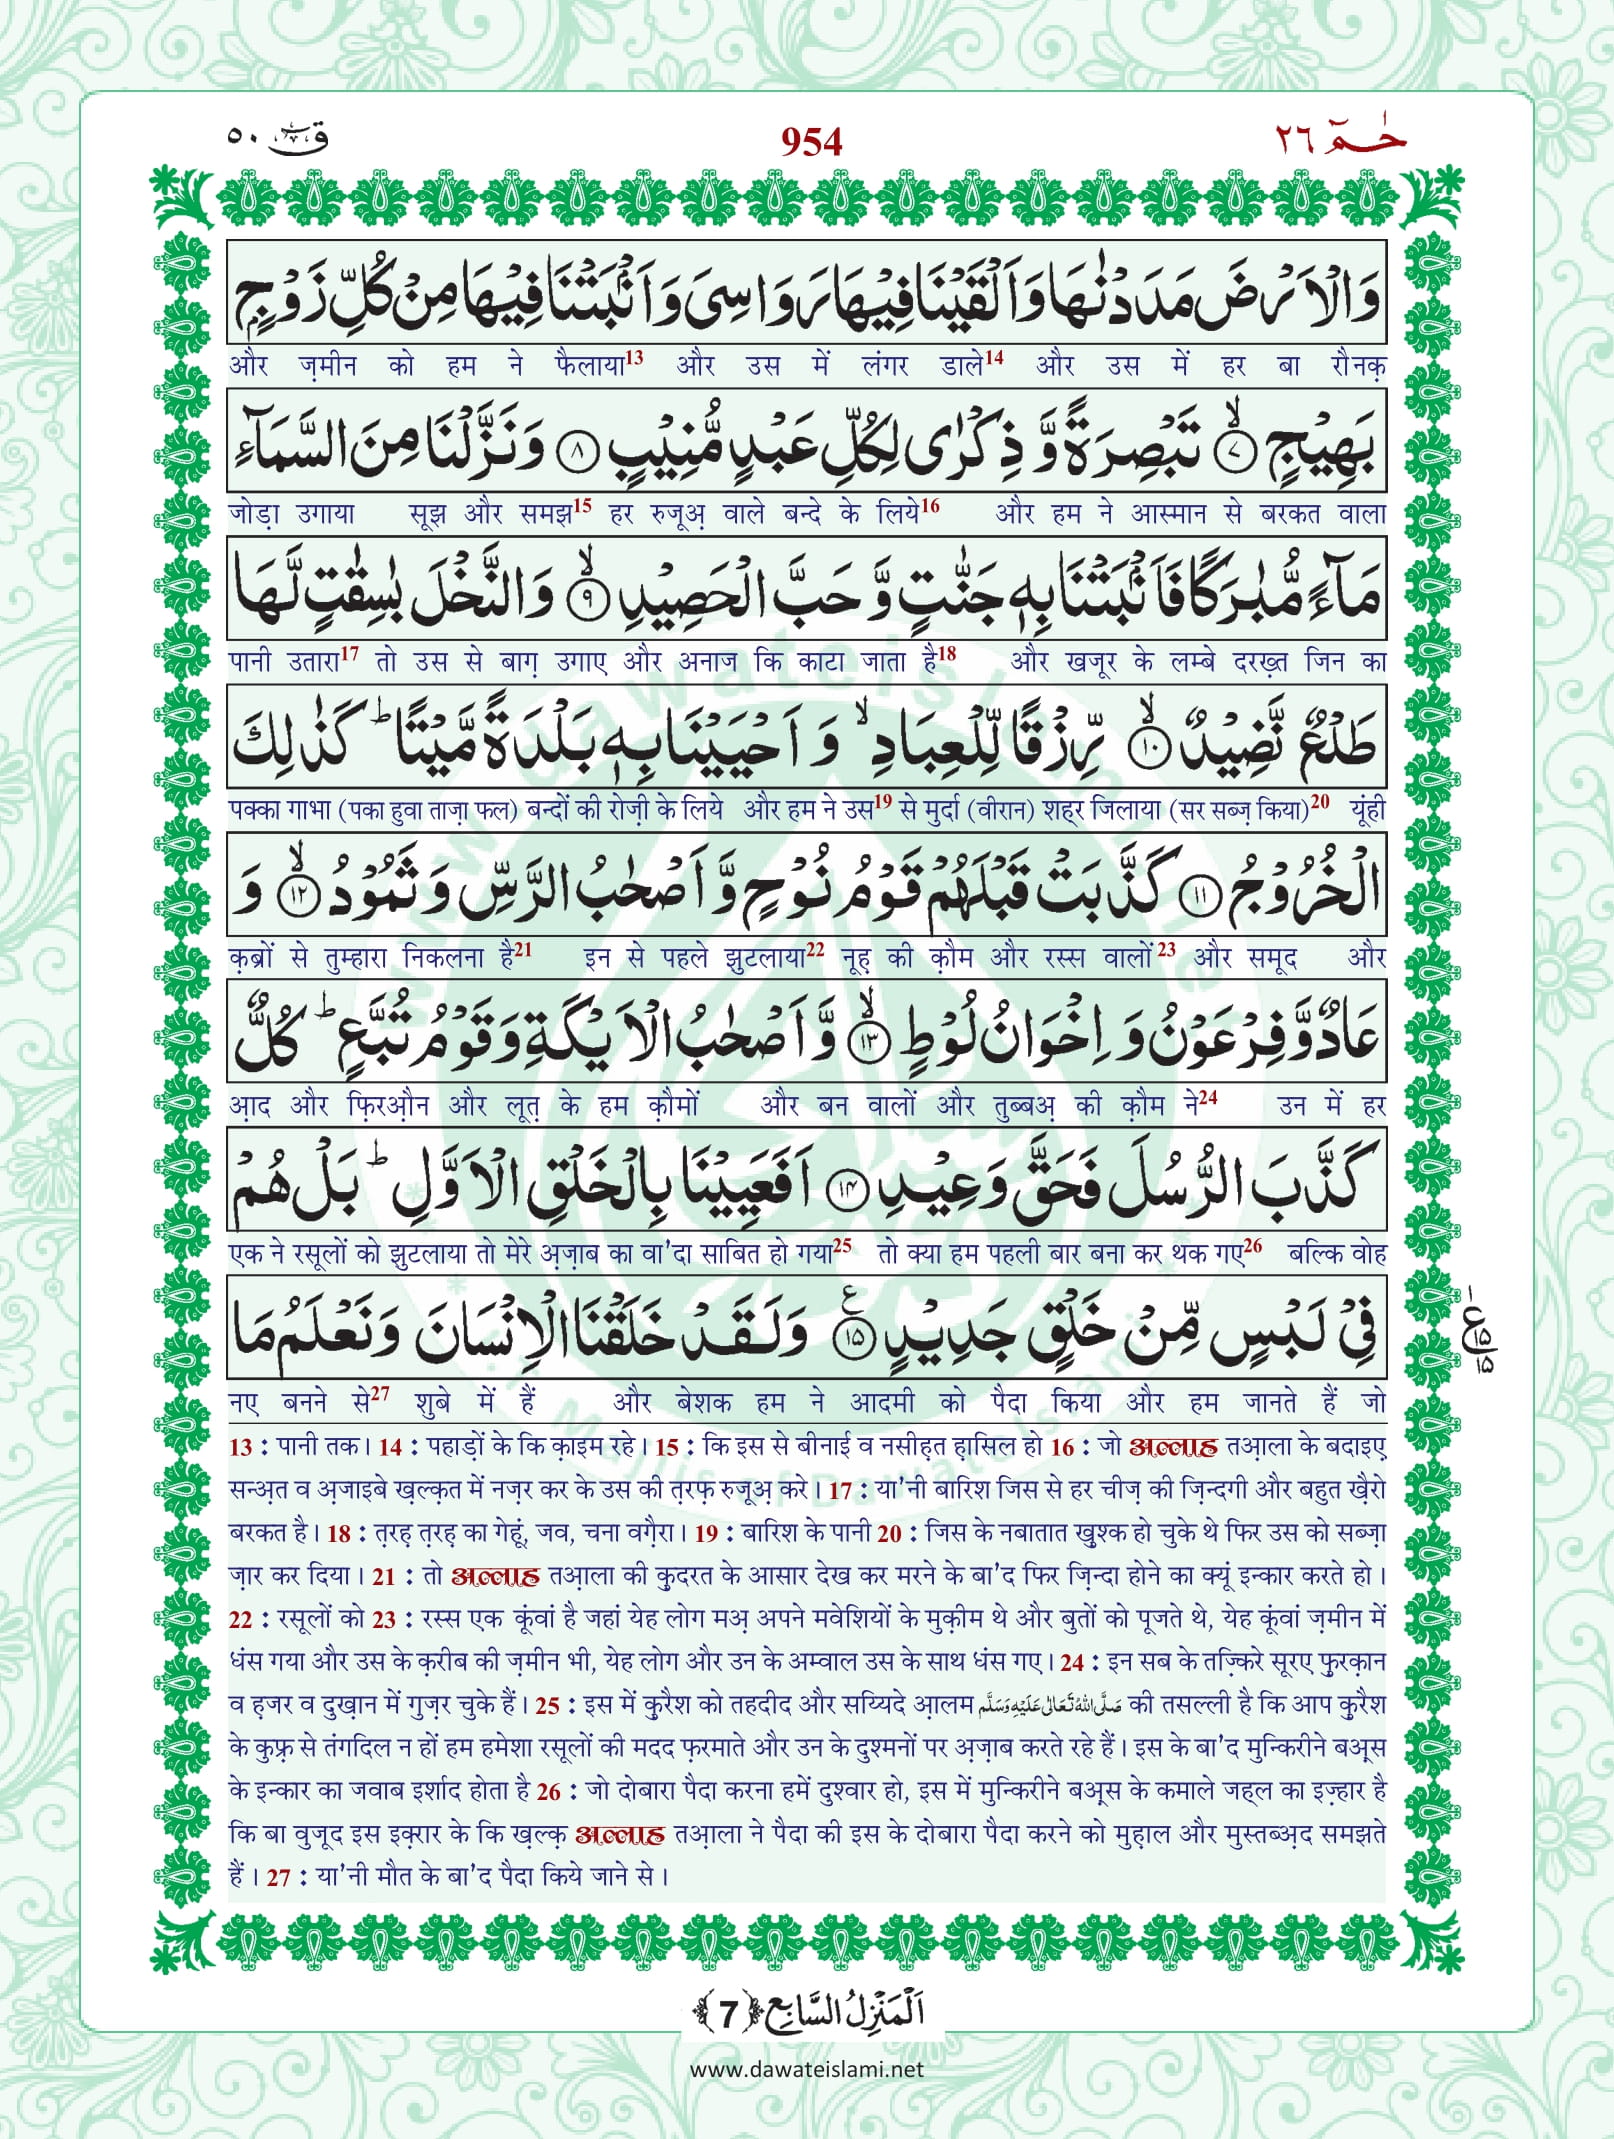 حٰمٓ ٢٦
954
قٓ ٥٠
وَالْاَرْضَ مَدَدْنٰهَا وَاَلْقَیْنَا فِیْهَا رَوَاسِیَ وَاَنْۢبَتْنَا فِیْهَا مِنْ كُلِّ زَوْجٍۭ
और ज़मीन को हम ने फैलाया13 और उस में लंगर डाले14 और उस में हर बा रौनक़
بَهِیْجٍۙ۝۷ تَبْصِرَةً وَّ ذِكْرٰى لِكُلِّ عَبْدٍ مُّنِیْبٍ۝۸ وَنَزَّلْنَا مِنَ السَّمَآءِ
जोड़ा उगाया सूझ और समझ15 हर रुजूअ़ वाले बन्दे के लिये16 और हम ने आस्मान से बरकत वाला
مَآءً مُّبٰرَكًا فَاَنْۢبَتْنَا بِهٖ جَنّٰتٍ وَّ حَبَّ الْحَصِیْدِۙ۝۹ وَالنَّخْلَ بٰسِقٰتٍ لَّهَا
पानी उतारा17 तो उस से बाग़ उगाए और अनाज कि काटा जाता है18 और खजूर के लम्बे दरख़्त जिन का
طَلْعٌ نَّضِیْدٌۙ۝۱۰ رِّزْقًا لِّلْعِبَادِۙ وَ اَحْیَیْنَا بِهٖ بَلْدَةً مَّیْتًاؕ كَذٰلِكَ
पक्का गाभा (पका हुवा ताज़ा फल) बन्दों की रोज़ी के लिये और हम ने उस19 से मुर्दा (वीरान) शहर जिलाया (सर सब्ज़ किया)20 यूंही
الْخُرُوْجُ۝۱۱ كَذَّبَتْ قَبْلَهُمْ قَوْمُ نُوْحٍ وَّ اَصْحٰبُ الرَّسِّ وَ ثَمُوْدُۙ۝۱۲ وَ
क़ब्रों से तुम्हारा निकलना है21 इन से पहले झुटलाया22 नूह़ की क़ौम और रस्स वालों23 और समूद और
عَادٌ وَّ فِرْعَوْنُ وَ اِخْوَانُ لُوْطٍۙ۝۱۳ وَّ اَصْحٰبُ الْاَیْكَةِ وَ قَوْمُ تُبَّعٍؕ كُلٌّ
आ़द और फ़िरऔ़न और लूत़ के हम क़ौमों और बन वालों और तुब्बअ़ की क़ौम ने24 उन में हर
كَذَّبَ الرُّسُلَ فَحَقَّ وَعِیْدِ۝۱۴ اَفَعَیِیْنَا بِالْخَلْقِ الْاَوَّلِؕ بَلْ هُمْ
एक ने रसूलों को झुटलाया तो मेरे अ़ज़ाब का वा'दा साबित हो गया25 तो क्या हम पहली बार बना कर थक गए26 बल्कि वोह
فِیْ لَبْسٍ مِّنْ خَلْقٍ جَدِیْدٍ۠۝۱۵ وَلَقَدْ خَلَقْنَا الْاِنْسَانَ وَنَعْلَمُ مَا
नए बनने से27 शुबे में हैं और बेशक हम ने आदमी को पैदा किया और हम जानते हैं जो
13 : पानी तक। 14 : पहाड़ों के कि क़ाइम रहे। 15 : कि इस से बीनाई व नसीह़त ह़ासिल हो 16 : जो अल्लाह तआ़ला के बदाइए
सन्अ़त व अ़जाइबे ख़ल्क़त में नज़र कर के उस की त़रफ़ रुजूअ़ करे। 17 : या'नी बारिश जिस से हर चीज़ की ज़िन्दगी और बहुत ख़ैरो
बरकत है। 18 : त़रह़ त़रह़ का गेहूं, जव, चना वग़ैरा। 19 : बारिश के पानी 20 : जिस के नबातात ख़ुश्क हो चुके थे फिर उस को सब्ज़ा
ज़ार कर दिया। 21 : तो अल्लाह तआ़ला की कुदरत के आसार देख कर मरने के बा'द फिर ज़िन्दा होने का क्यूं इन्कार करते हो।
22 : रसूलों को 23 : रस्स एक कूंवां है जहां येह लोग मअ़ अपने मवेशियों के मुक़ीम थे और बुतों को पूजते थे, येह कूंवां ज़मीन में
धंस गया और उस के क़रीब की ज़मीन भी, येह लोग और उन के अम्वाल उस के साथ धंस गए। 24 : इन सब के तज़्किरे सूरए फ़ुरक़ान
व ह़जर व दुख़ान में गुज़र चुके हैं। 25 : इस में कुरैश को तहदीद और सय्यिदे आ़लम صَلَّى اللهُ تَعَالٰى عَلَيْهِ وَسَلَّم की तसल्ली है कि आप कुरैश
के कुफ़्र से तंगदिल न हों हम हमेशा रसूलों की मदद फ़रमाते और उन के दुश्मनों पर अ़ज़ाब करते रहे हैं। इस के बा'द मुन्किरीने बअ़्स
के इन्कार का जवाब इर्शाद होता है 26 : जो दोबारा पैदा करना हमें दुश्वार हो, इस में मुन्किरीने बअ़्स के कमाले जह्ल का इज़्हार है
कि बा वुजूद इस इक़्रार के कि ख़ल्क़ अल्लाह तआ़ला ने पैदा की इस के दोबारा पैदा करने को मुह़ाल और मुस्तब्अ़द समझते
हैं। 27 : या'नी मौत के बा'द पैदा किये जाने से।
اَلْمَنْزِلُ السَّابِع ﴿7﴾
www.dawateislami.net